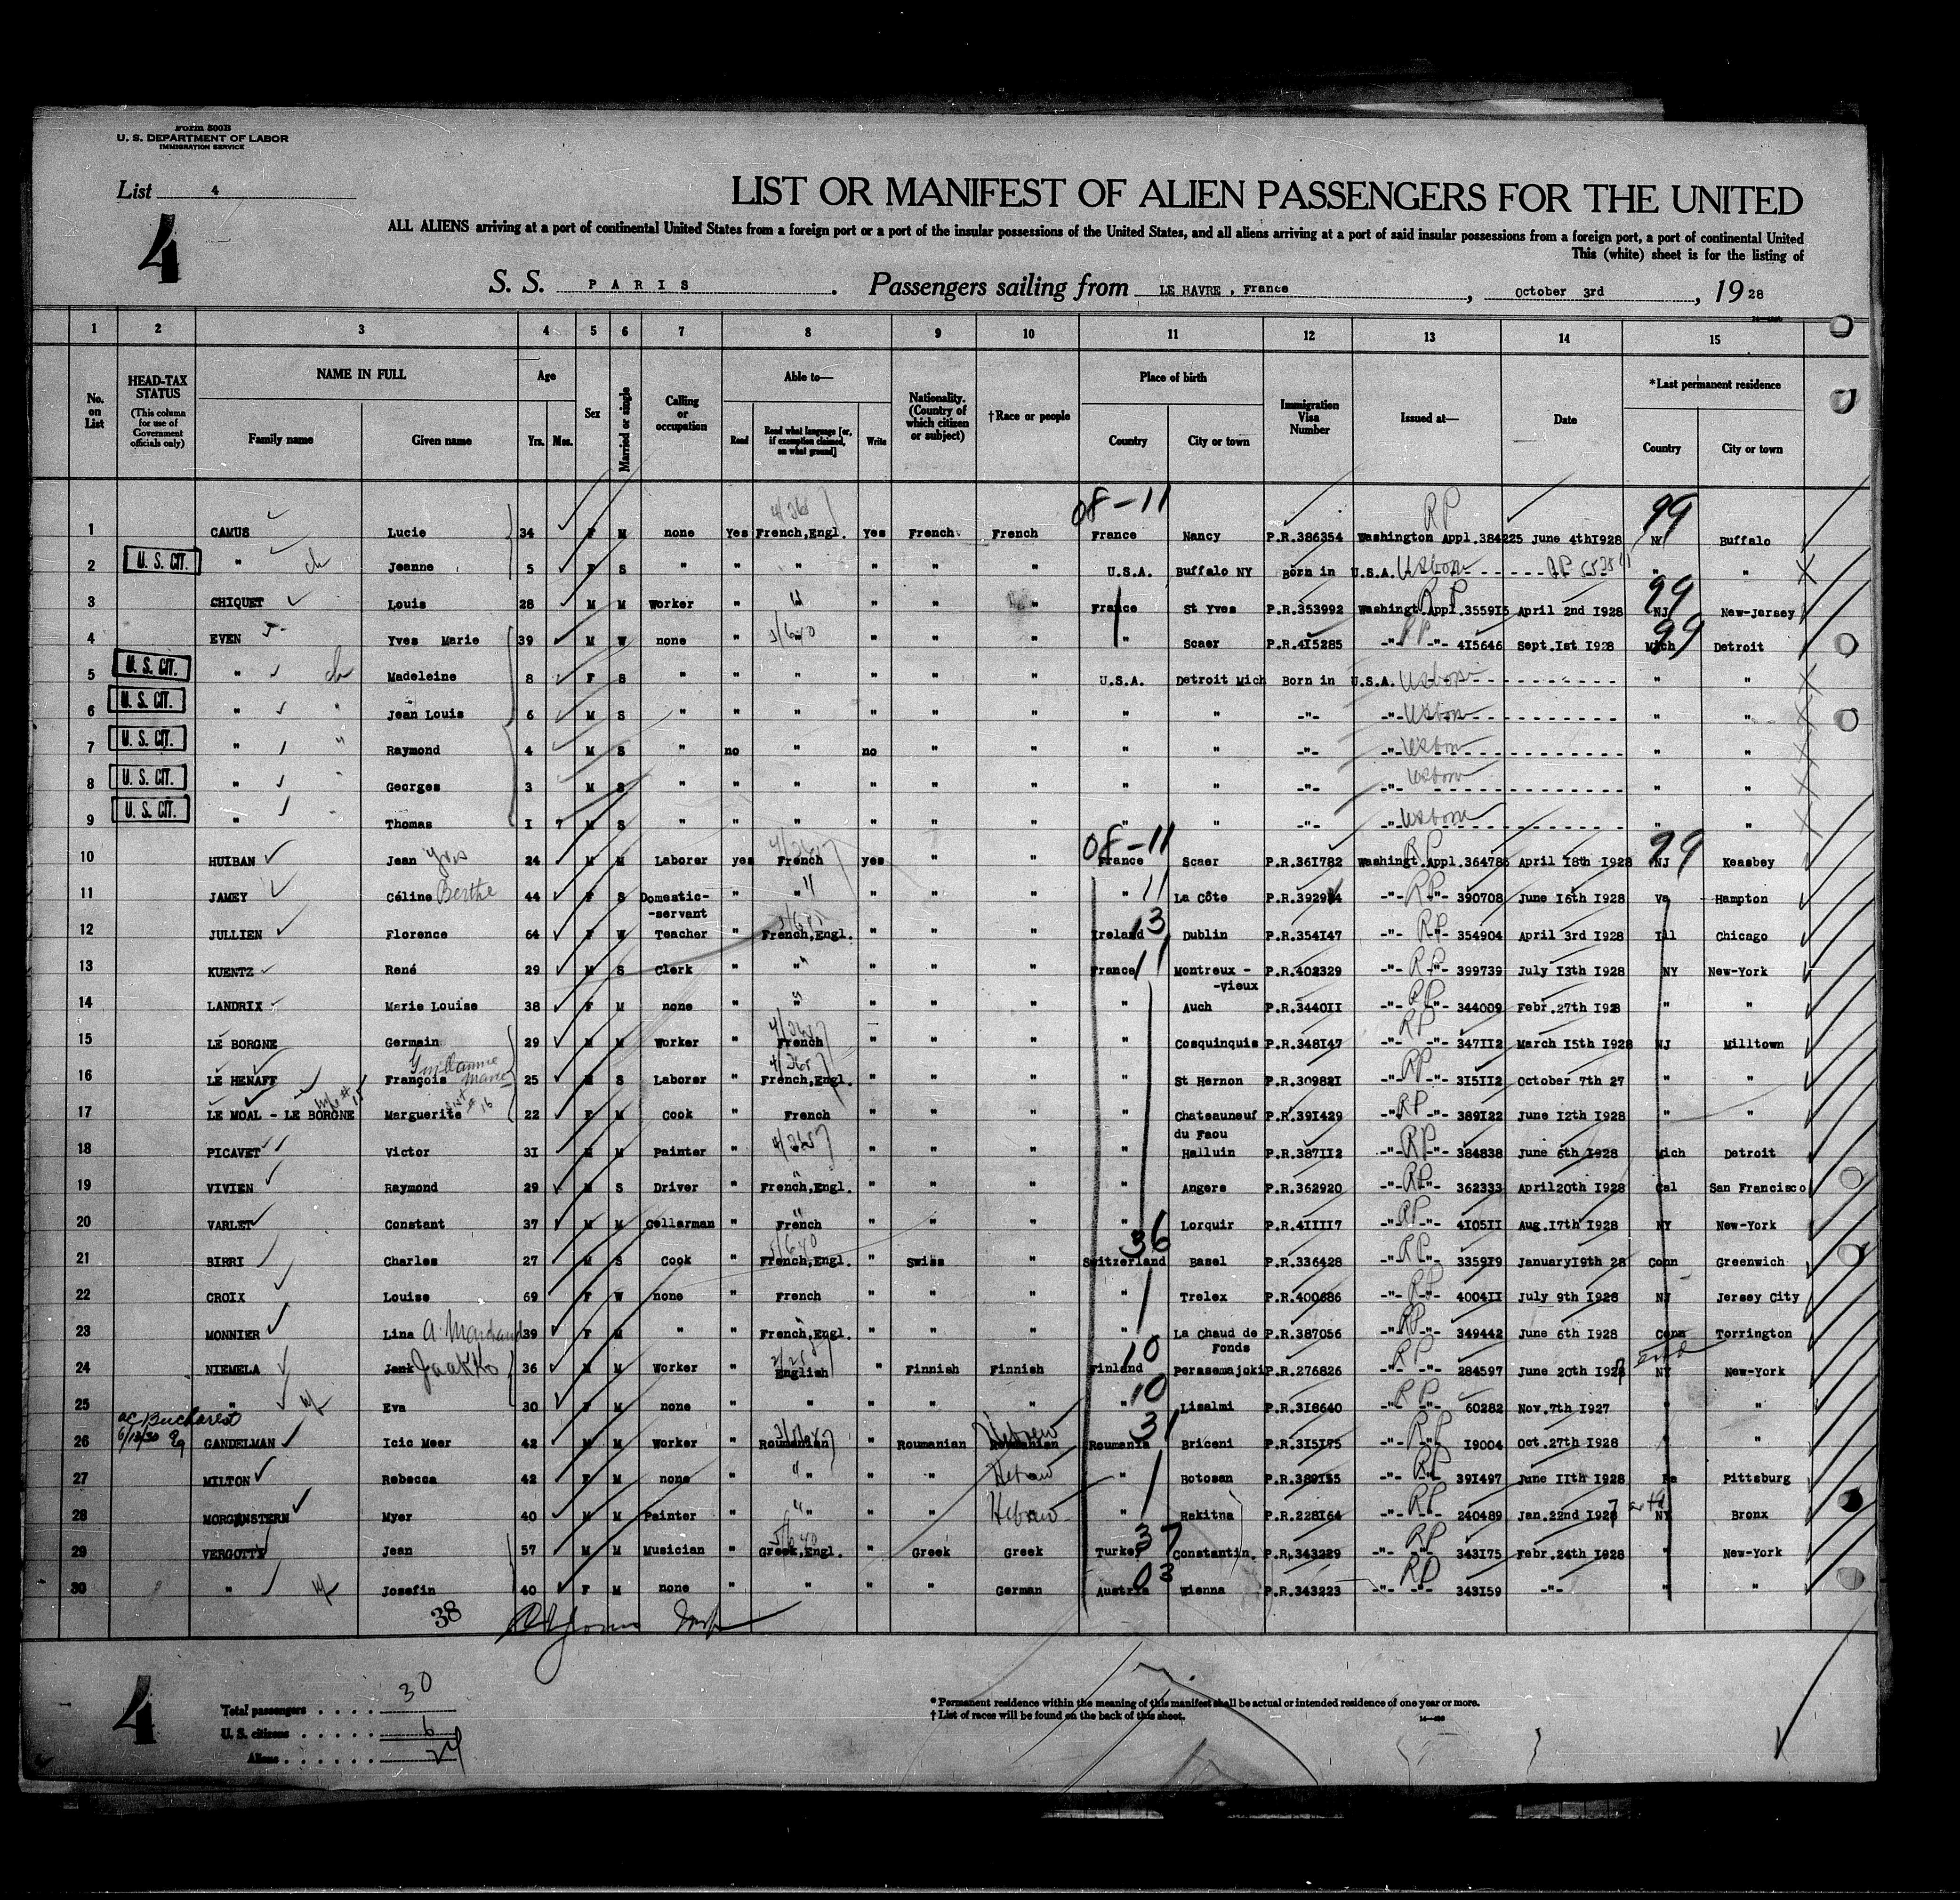 Form 500B
U. S. DEPARTMENT OF LABOR
IMMIGRATION SERVICE
List 4
4
LIST OR MANIFEST OF ALIEN PASSENGERS FOR THE UNITED
ALL ALIENS arriving at a port of continental United States from a foreign port or a port of the insular possessions of the United States, and all aliens arriving at a port of said insular possessions from a foreign port, a port of continental United
This (white) sheet is for the listing of
S. S. PARIS. Passengers sailing from LE HAVRE, France, October 3rd, 1928
1 2 3 4 5 6 7 8 9 10 11 12 13 14 15
No. on List
HEAD-TAX STATUS (This column for use of Government officials only)
NAME IN FULL Family name Given name
Age Yrs. Mos.
Sex
Married or single
Calling or occupation
Able to— Read Read what language [or, if exemption claimed, on what ground] Write
Nationality. (Country of which citizen or subject)
†Race or people
Place of birth Country City or town
Immigration Visa Number
Issued at—
Date
*Last permanent residence Country City or town
08-11 RP 99
1 CAMUS Lucie 34 F M none Yes French,Engl. Yes French French France Nancy P.R.386354 Washington Appl.384225 June 4thI928 NY Buffalo
2 U. S. CIT. " ch Jeanne 5 F S " " " " " " U.S.A. Buffalo NY Born in U.S.A. USborn " "
3 CHIQUET Louis 28 M M Worker " " " " " France St Yves P.R.353992 Washingt.Appl.3559I5 RP April 2nd I928 99 NJ New-Jersey
4 EVEN Yves Marie 39 M W none " " " " " " Scaer P.R.4I5285 -"- RP -"- 4I5646 Sept.Ist I928 99 Mich Detroit
5 U. S. CIT. " ch Madeleine 8 F S " " " " " " U.S.A. Detroit Mich Born in U.S.A. USborn " "
6 U. S. CIT. " " Jean Louis 6 M S " " " " " " " " -"- -"- USborn " "
7 U. S. CIT. " " Raymond 4 M S " no " no " " " " -"- -"- USborn " "
8 U. S. CIT. " " Georges 3 M S " " " " " " " " -"- -"- USborn " "
9 U. S. CIT. " " Thomas I 7 M S " " " " " " " " -"- -"- USborn " "
08-11
10 HUIBAN Jean Yves 24 M M Laborer yes French yes " " France Scaer P.R.36I782 Washingt.Appl.364786 RP April I8th I928 99 NJ Keasbey
11 JAMEY Céline Berthe 44 F S Domestic--servant " " " " " " 11 La Côte P.R.392984 -"- RP -"- 390708 June I6th I928 Va Hampton
12 JULLIEN Florence 64 F W Teacher " French,Engl. " " " Ireland 13 Dublin P.R.354I47 -"- RP -"- 354904 April 3rd I928 Ill Chicago
13 KUENTZ René 29 M S Clerk " " " " " France 11 Montreux --vieux P.R.402329 -"- RP -"- 399739 July I3th I928 NY New-York
14 LANDRIX Marie Louise 38 F M none " " " " " " Auch P.R.3440II -"- RP -"- 344009 Febr.27th I928 " "
15 LE BORGNE Germain 29 M M Worker " French " " " " Cosquinquis P.R.348I47 -"- RP -"- 347II2 March I5th I928 NJ Milltown
16 LE HENAFF François Marie 25 M S Laborer " French,Engl. " " " " St Hernon P.R.30982I -"- RP -"- 3I5II2 October 7th 27 " "
17 LE MOAL - LE BORGNE Marguerite 22 F M Cook " French " " " " Chateauneuf du Faou P.R.39I429 -"- RP -"- 389I22 June I2th I928 " "
18 PICAVET Victor 3I M M Painter " " " " " " Halluin P.R.387II2 -"- RP -"- 384838 June 6th I928 Mich Detroit
19 VIVIEN Raymond 29 M S Driver " French,Engl. " " " " Angers P.R.362920 -"- RP -"- 362333 April20th I928 Cal San Francisco
20 VARLET Constant 37 M M Cellarman " French " " " " Lorquir P.R.4IIII7 -"- RP -"- 4I05II Aug.I7th I928 NY New-York
21 BIRRI Charles 27 M S Cook " French,Engl. " Swiss " Switzerland 36 Basel P.R.336428 -"- RP -"- 3359I9 JanuaryI9th 28 Conn Greenwich
22 CROIX Louise 69 F W none " French " " " " Trelex P.R.400686 -"- RP -"- 4004II July 9th I928 NJ Jersey City
23 MONNIER Lina A. Marchand 39 F M " " French,Engl. " " " " La Chaud de Fonds P.R.387056 -"- RP -"- 349442 June 6th I928 Conn Torrington
24 NIEMELA Jank Jaakko 36 M M Worker " English " Finnish Finnish Finland 10 Perasemajoki P.R.276826 -"- RP -"- 284597 June 20th I928 NY New-York
25 " w/ Eva 30 F M none " " " " " " 10 Lisalmi P.R.3I8640 -"- RP -"- 60282 Nov.7th I927 " "
ac Bucharest 6/18/30
26 GANDELMAN Icic Meer 42 M M Worker " Roumanian " Roumanian Roumanian Hebrew Roumania 31 Briceni P.R.3I5I75 -"- RP -"- I9004 Oct.27th I928 " "
27 MILTON Rebecca 42 F M none " " " " Hebrew " Botosan P.R.389I55 -"- RP -"- 39I497 June IIth I928 Pa Pittsburg
28 MORGANSTERN Myer 40 M M Painter " " " " Hebrew " Rakitna P.R.228I64 -"- RP -"- 240489 Jan.22nd I928 7 NY Bronx
29 VERGOTTY Jean 57 M M Musician " Greek,Engl. " Greek Greek Turkey 37 Constantin. P.R.343229 -"- RP -"- 343I75 Febr.24th I928 " New-York
30 " w/ Josefin 40 F M none " " " " German Austria 03 Wienna P.R.343223 -"- RP -"- 343I59 -"- " "
38
4
Total passengers . . . . 30
U. S. citizens . . . . . 6
Aliens . . . . . . 24
* Permanent residence within the meaning of this manifest shall be actual or intended residence of one year or more.
† List of races will be found on the back of this sheet.